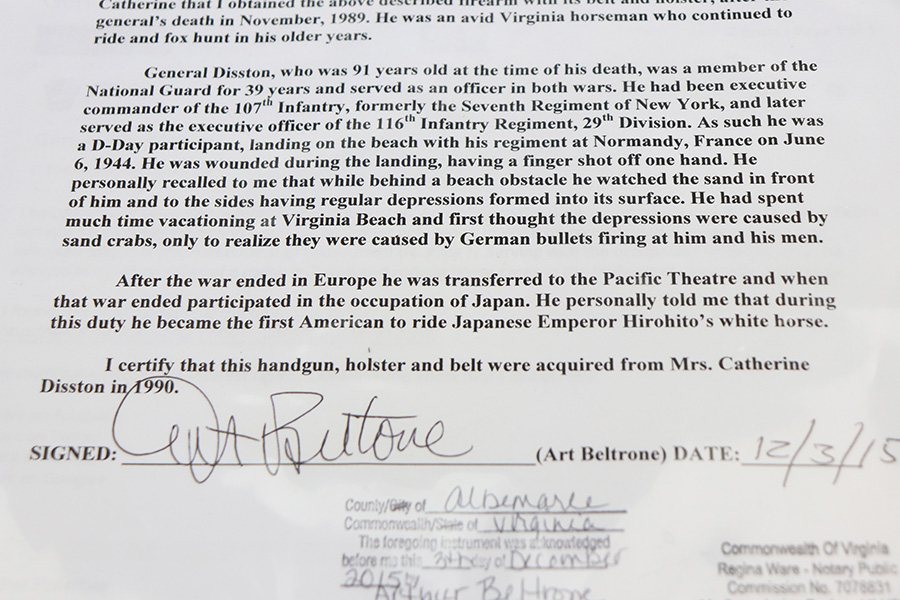 Catherine that I obtained the above described firearm with its belt and holster, after the
general's death in November, 1989. He was an avid Virginia horseman who continued to
ride and fox hunt in his older years.
General Disston, who was 91 years old at the time of his death, was a member of the
National Guard for 39 years and served as an officer in both wars. He had been executive
commander of the 107th Infantry, formerly the Seventh Regiment of New York, and later
served as the executive officer of the 116th Infantry Regiment, 29th Division. As such he was
a D-Day participant, landing on the beach with his regiment at Normandy, France on June
6, 1944. He was wounded during the landing, having a finger shot off one hand. He
personally recalled to me that while behind a beach obstacle he watched the sand in front
of him and to the sides having regular depressions formed into its surface. He had spent
much time vacationing at Virginia Beach and first thought the depressions were caused by
sand crabs, only to realize they were caused by German bullets firing at him and his men.
After the war ended in Europe he was transferred to the Pacific Theatre and when
that war ended participated in the occupation of Japan. He personally told me that during
this duty he became the first American to ride Japanese Emperor Hirohito's white horse.
I certify that this handgun, holster and belt were acquired from Mrs. Catherine
Disston in 1990.
SIGNED: Art Beltrone (Art Beltrone) DATE: 12/3/15
County/City of Albemarle
Commonwealth/State of Virginia
The foregoing instrument was acknowledged
before me this 3rd day of December
2015
Arthur Beltrone
Commonwealth Of Virginia
Regina Ware - Notary Public
Commission No. 7078831